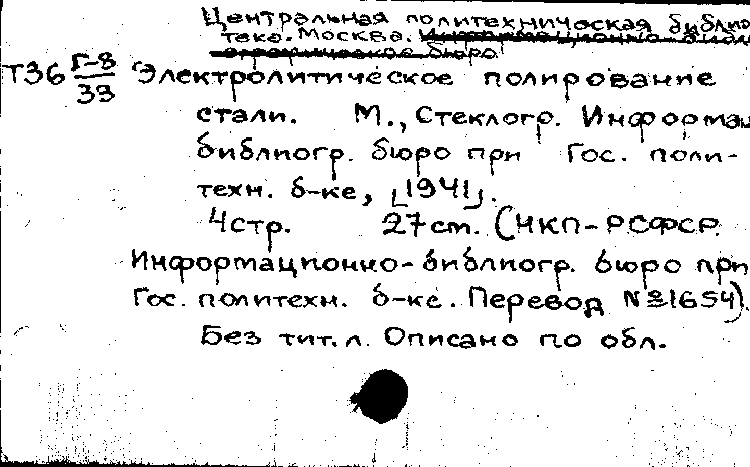 Центральная политехническая библио
тека. Москва. Информационно-библи
ографическое бюро
Т36 Г-8/33 Электролитическое полирование
стали. М., Стеклогр. Информац
библиогр. бюро при Гос. поли-
техн. б-ке, [1941].
4стр. 27cm. (НКП-РСФСР.
Информационно-библиогр. бюро при
Гос. политехн. б-ке. Перевод №1654).
Без тит. л. Описано по обл.